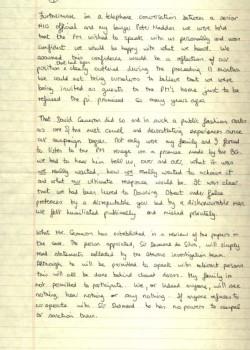 Furthermore in a telephone conversation between a senior
NIO official and my lawyer Peter Madden we were told
that the PM wished to speak with us personally and was
confident we would be happy with what we heard. We
assumed this confidence would be a reflection of our
position clearly outlined during the preceding 11 months
that had been
We could not bring ourselves to believe that we were
being invited as guests to the PM's home just to be
refused the p.i. promised so many years ago.
That David Cameron did so and in such a public fashion ranks
as one of the most cruel and devastating experiences since
our campaign began. Not only were my family and I forced
to listen to the PM renege on a promise made by the BG,
we had to hear him tell us, over and over, what it was
we really wanted, how we really wanted to achieve it
and what our ultimate response would be. It was clear
that we had been lured to Downing Street under false
pretences by a disreputable govt led by a dishonourable man
we felt humiliated publically and misled privately.
What Mr. Cameron has established is a review of the papers in
the case. The person appointed, Sir Desmond de Silva, will simply
read statements collected by the Stevens investigation team.
Although he will be permitted to speak with relevant persons
this will all be done behind closed doors. My family is
not permitted to participate. We, or indeed anyone, will see
nothing, hear nothing or say nothing. If anyone refuses to
co operate with Sir Desmond he has no powers to compel
or sanction them.